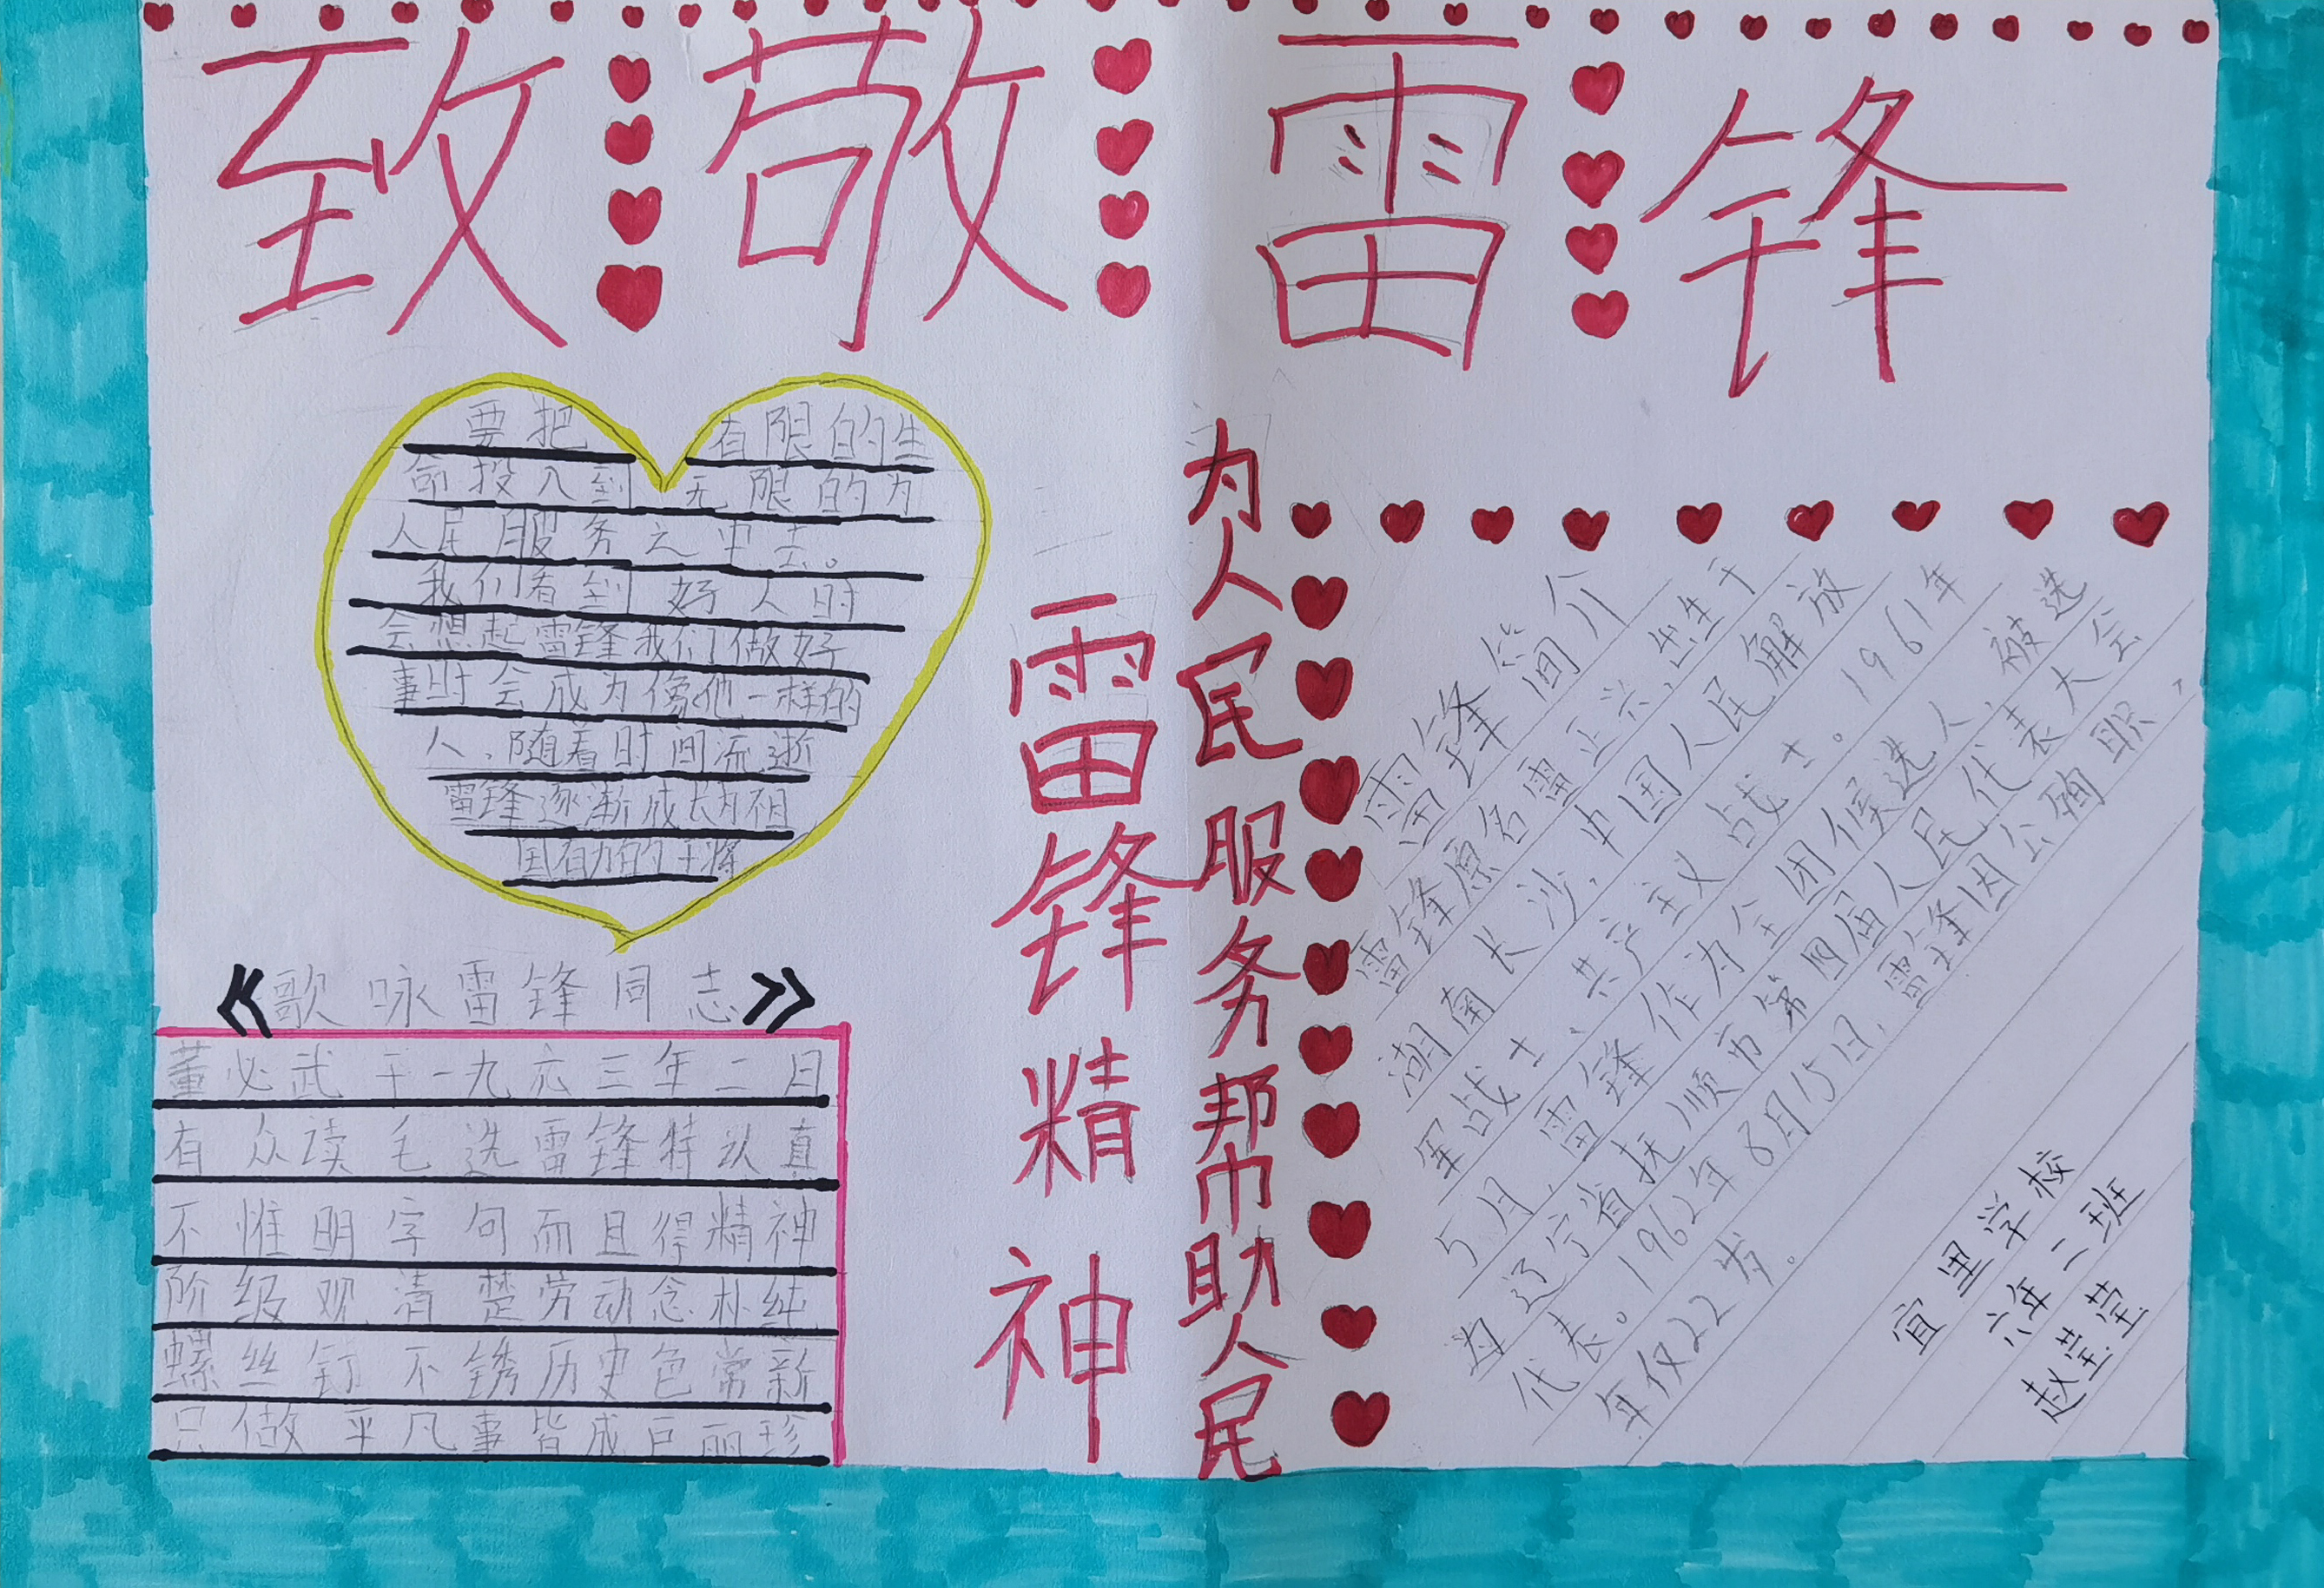 致敬雷锋
要把有限的生
命投入到无限的为
人民服务之中去。
我们看到好人时
会想起雷锋我们做好
事时会成为像他一样的
人、随着时间流逝
雷锋逐渐成长为祖
国有力的干将
《歌咏雷锋同志》
董必武于一九六三年二日
有众读毛选雷锋特认真
不惟明字句而且得精神
阶级观清楚劳动念朴纯
螺丝钉不锈历史色常新
只做平凡事皆成巨丽珍
雷锋精神
为人民服务帮助人民
雷锋简介
雷锋原名雷正兴、出生于
湖南长沙,中国人民解放
军战士、共产主义战士。1961年
5月、雷锋作为全团候选人、被选
为辽宁省抚顺市第四届人民代表大会
代表。1962年8月15日、雷锋因公殉职,
年仅22岁。
宜里学校
六年二班
赵莹莹